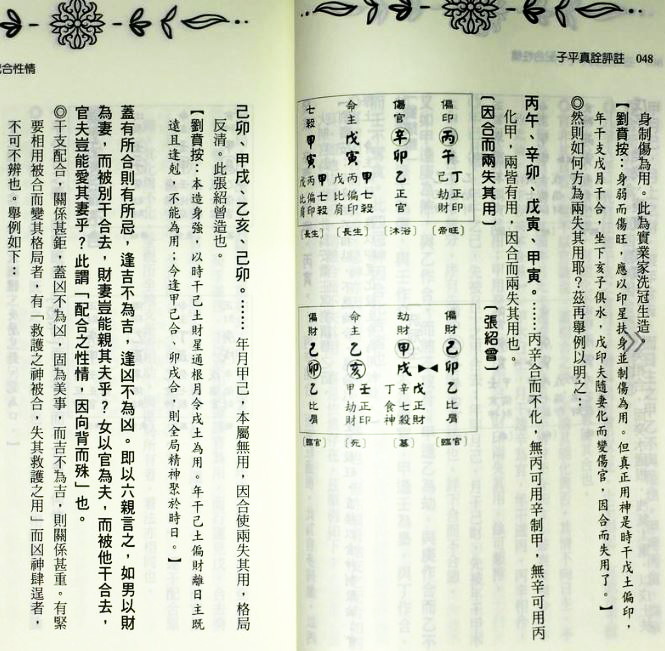 子平真詮評註 048
身制傷為用。此為實業家冼冠生造。
【劉賁按：身弱而傷旺，應以印星扶身並制傷為用。但真正用神是時干戊土偏印，
年干支戊月干合，坐下亥子俱水，戊印夫隨妻化而變傷官，因合而失用了。】
◎然則如何方為兩失其用耶？茲再舉例以明之：
丙午、辛卯、戊寅、甲寅。……丙辛合而不化，無丙可用辛制甲，無辛可用丙
化甲，兩皆有用，因合而兩失其用也。
【因合而兩失其用】
偏印 丙午 丁正印 己劫財 〔帝旺〕
傷官 辛卯 乙正官 〔沐浴〕
命主 戊寅 甲七殺 丙偏印 戊比肩 〔長生〕
七殺 甲寅 甲七殺 丙偏印 戊比肩 〔長生〕
〔張紹曾〕
偏財 己卯 乙比肩 〔臨官〕
劫財 甲戌 戊正財 辛七殺 丁食神 〔墓〕
命主 乙亥 壬正印 甲劫財 〔死〕
偏財 己卯 乙比肩 〔臨官〕
配合性情
己卯、甲戌、乙亥、己卯。……年月甲己，本屬無用，因合使兩失其用，格局
反清。此張紹曾造也。
【劉賁按：本造身強，以時干己土財星通根月令戌土為用。年干己土偏財離日主既
遠且逢剋，不能為用；今逢甲己合、卯戌合，則全局精神聚於時日。】
蓋有所合則有所忌，逢吉不為吉，逢凶不為凶。即以六親言之，如男以財
為妻，而被別干合去，財妻豈能親其夫乎？女以官為夫，而被他干合去，
官夫豈能愛其妻乎？此謂「配合之性情，因向背而殊」也。
◎干支配合，關係甚鉅，蓋凶不為凶，固為美事，而吉不為吉，則關係甚重。有緊
要相用被合而變其格局者，有「救護之神被合，失其救護之用」而凶神肆逞者，
不可不辨也。舉例如下：